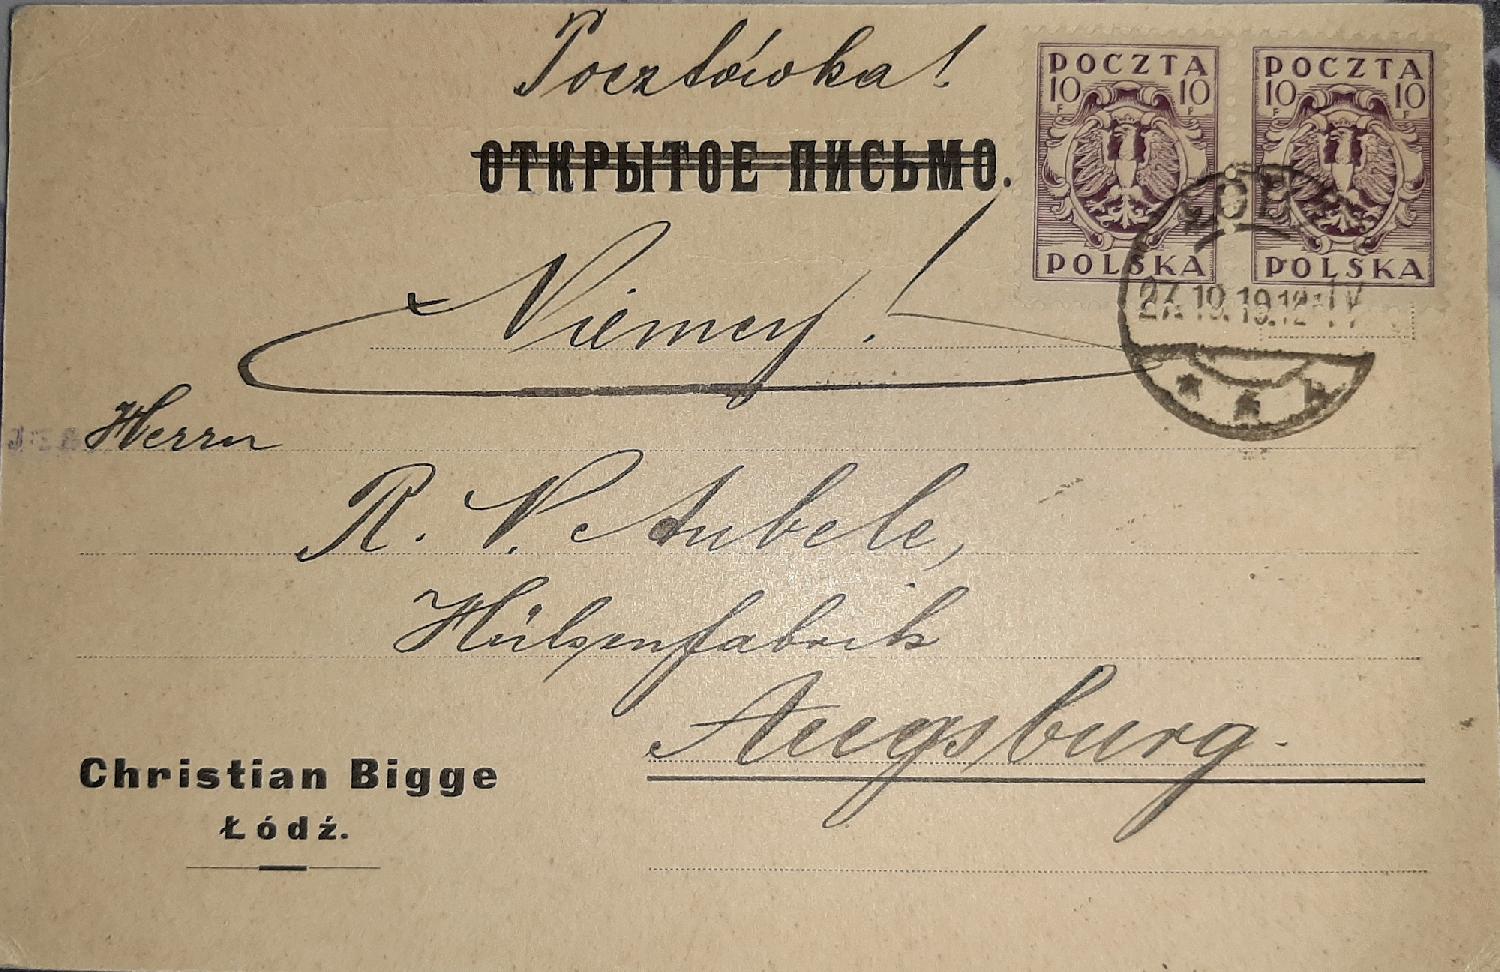 Pocztówka!
ОТКРЫТОЕ ПИСЬМО.
POCZTA
10 10
F F
POLSKA
POCZTA
10 10
F F
POLSKA
27.10.19.12-1V
Niemcy!
Herrn
R. P. Aubele,
Hülsenfabrik
Augsburg.
Christian Bigge
Łódź.